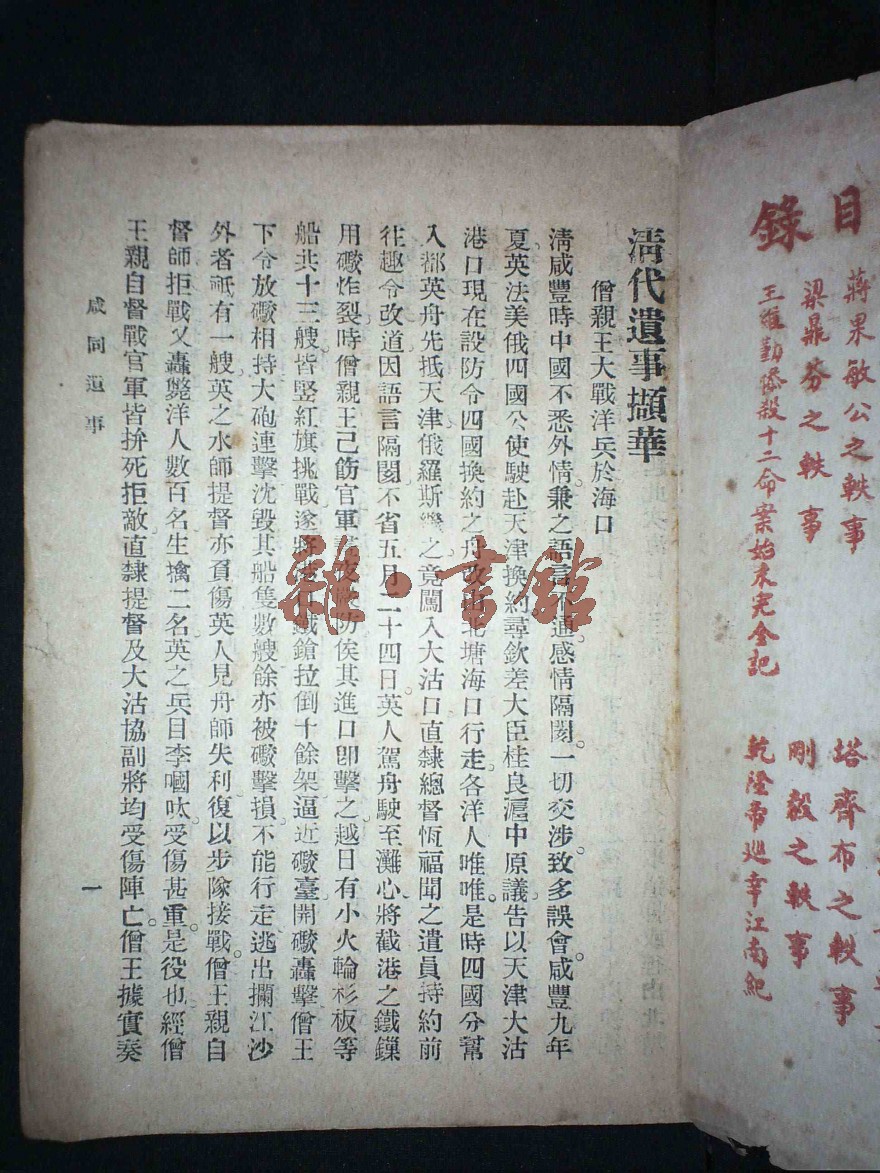 目錄
蔣果敏公之軼事
塔齊布之軼事
梁鼎芬之軼事
剛毅之軼事
王維勤慘殺十二命案始末完全記
乾隆帝巡幸江南紀
清代遺事擷華
僧親王大戰洋兵於海口
清咸豐時中國不悉外情兼之語言不通感情隔閡。一切交涉致多誤會。咸豐九年
夏英法美俄四國公使駛赴天津換約尋欽差大臣桂良滬中原議告以天津大沽
港口現在設防令四國換約之舟改由北塘海口行走。各洋人唯唯。是時四國分幫
入都英舟先抵天津俄羅斯繼之竟闖入大沽口直隸總督恆福聞之遣員持約前
往趣令改道因語言隔閡不省五月二十四日。英人駕舟駛至灘心將截港之鐵鏁
用礮炸裂。時僧親王已飭官軍夜嚴防俟其進口卽擊之越日有小火輪杉板等
船共十三艘。皆竪紅旗挑戰遂將港口鐵鎗拉倒十餘架。逼近礮臺開礮轟擊僧王
下令放礮相持大砲連擊沈毀其船隻數艘餘亦被礮擊損。不能行走逃出攔江沙
外者祇有一艘。英之水師提督亦負傷英人見舟師失利。復以步隊接戰。僧王親自
督師拒戰又轟斃洋人數百名生擒二名英之兵目李嘓呔。受傷甚重。是役也。經僧
王親自督戰官軍皆拚死拒敵。直隸提督及大沽協副將均受傷陣亡。僧王據實奏
咸同遺事
一
雜·書館